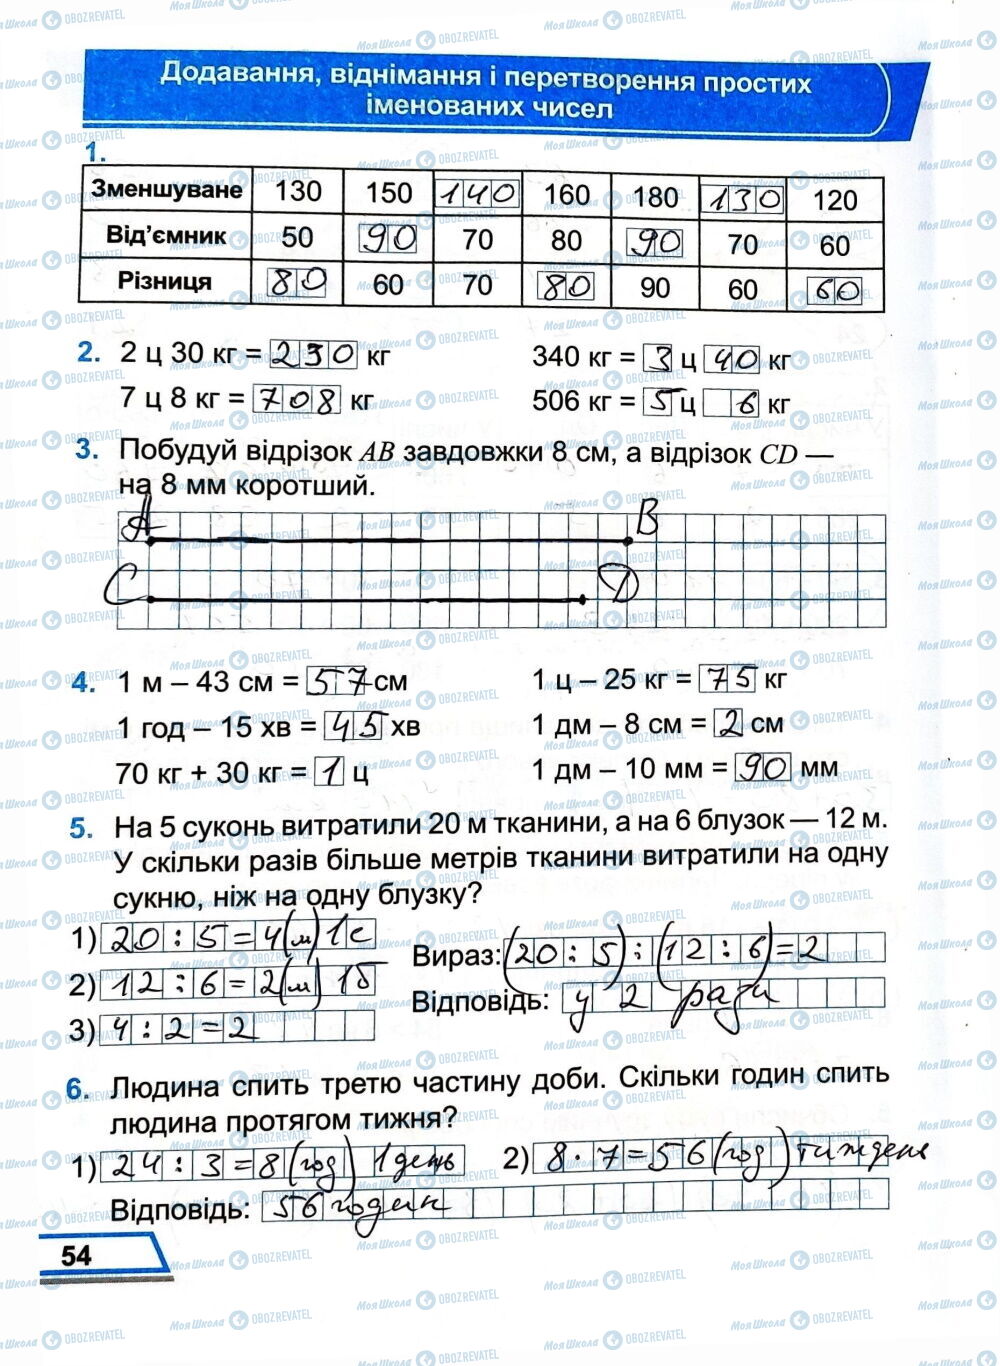 Додавання, віднімання і перетворення простих
іменованих чисел
1.
Зменшуване 130 150 140 160 180 130 120
Від’ємник 50 90 70 80 90 70 60
Різниця 80 60 70 80 90 60 60
2. 2 ц 30 кг = 230 кг 340 кг = 3 ц 40 кг
7 ц 8 кг = 708 кг 506 кг = 5 ц 6 кг
3. Побудуй відрізок AB завдовжки 8 см, а відрізок CD —
на 8 мм коротший.
A B
C D
4. 1 м – 43 см = 57 см 1 ц – 25 кг = 75 кг
1 год – 15 хв = 45 хв 1 дм – 8 см = 2 см
70 кг + 30 кг = 1 ц 1 дм – 10 мм = 90 мм
5. На 5 суконь витратили 20 м тканини, а на 6 блузок — 12 м.
У скільки разів більше метрів тканини витратили на одну
сукню, ніж на одну блузку?
1) 20 : 5 = 4 (м) 1с
2) 12 : 6 = 2 (м) 1б
3) 4 : 2 = 2
Вираз: (20 : 5) : (12 : 6) = 2
Відповідь: у 2 рази
6. Людина спить третю частину доби. Скільки годин спить
людина протягом тижня?
1) 24 : 3 = 8 (год) 1 день 2) 8 · 7 = 56 (год) тиждень
Відповідь: 56 годин
54
МояШкола OBOZREVATEL